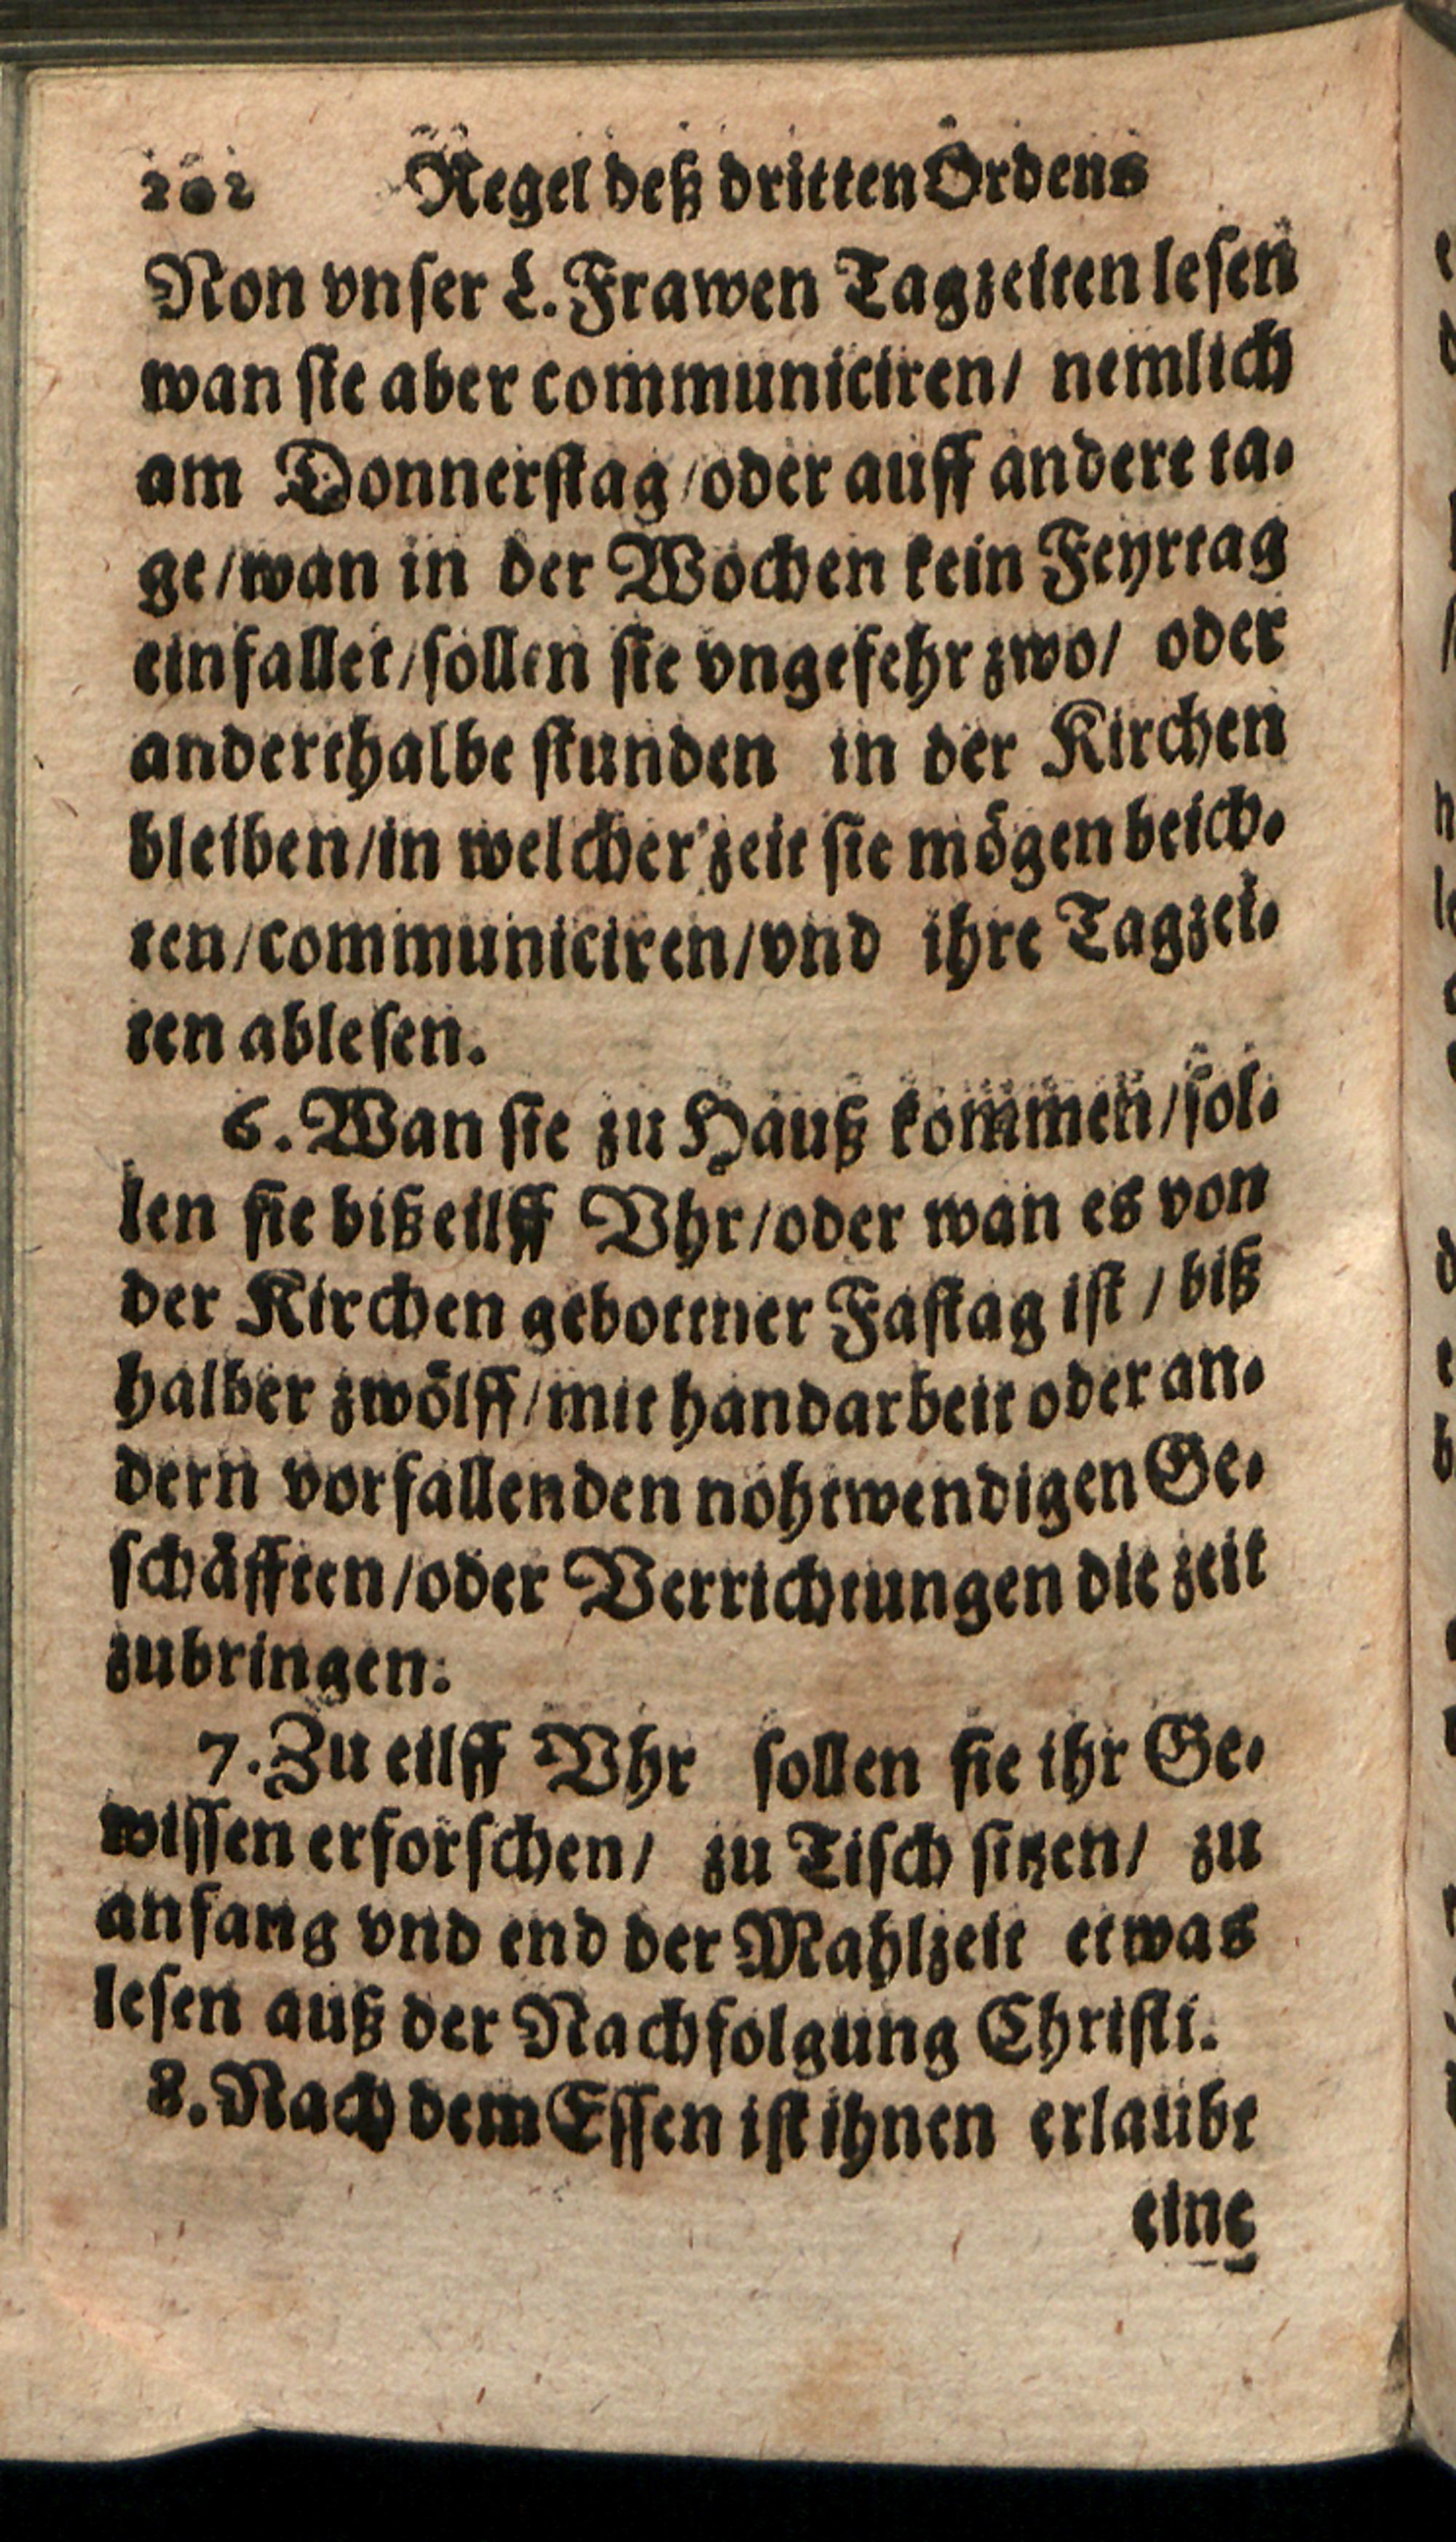 202 Regel deß dritten Ordens
Non vnser L. Frawen Tagzeiten lesen
wan sie aber communiciren/ nemlich
am Donnerstag/oder auff andere ta-
ge/wan in der Wochen kein Feyrtag
einfallet/sollen sie vngefehr zwo/ oder
anderthalbe stunden in der Kirchen
bleiben/in welcher zeit sie mögen beich-
ten/communiciren/vnd ihre Tagzei-
ten ablesen.
6. Wan sie zu Hauß kommen/sol-
len sie biß eilff Vhr/oder wan es von
der Kirchen gebottner Fastag ist / biß
halber zwölff/mit handarbeit oder an-
dern vorfallenden nohtwendigen Ge-
schäfften/oder Verrichtungen die zeit
zubringen.
7. Zu eilff Vhr sollen sie ihr Ge-
wissen erforschen/ zu Tisch sitzen/ zu
anfang vnd end der Mahlzeit etwas
lesen auß der Nachfolgung Christi.
8. Nach dem Essen ist ihnen erlaubt
eine